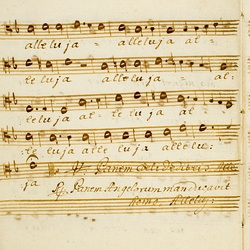 alleluja - alleluja -
alleluja alleluja - al-
leluja al- leluja alle
leluja alleluja allelu-
ja ℣. Panem
℟. Panem Angelorum manducavit
homo. Alleluj: